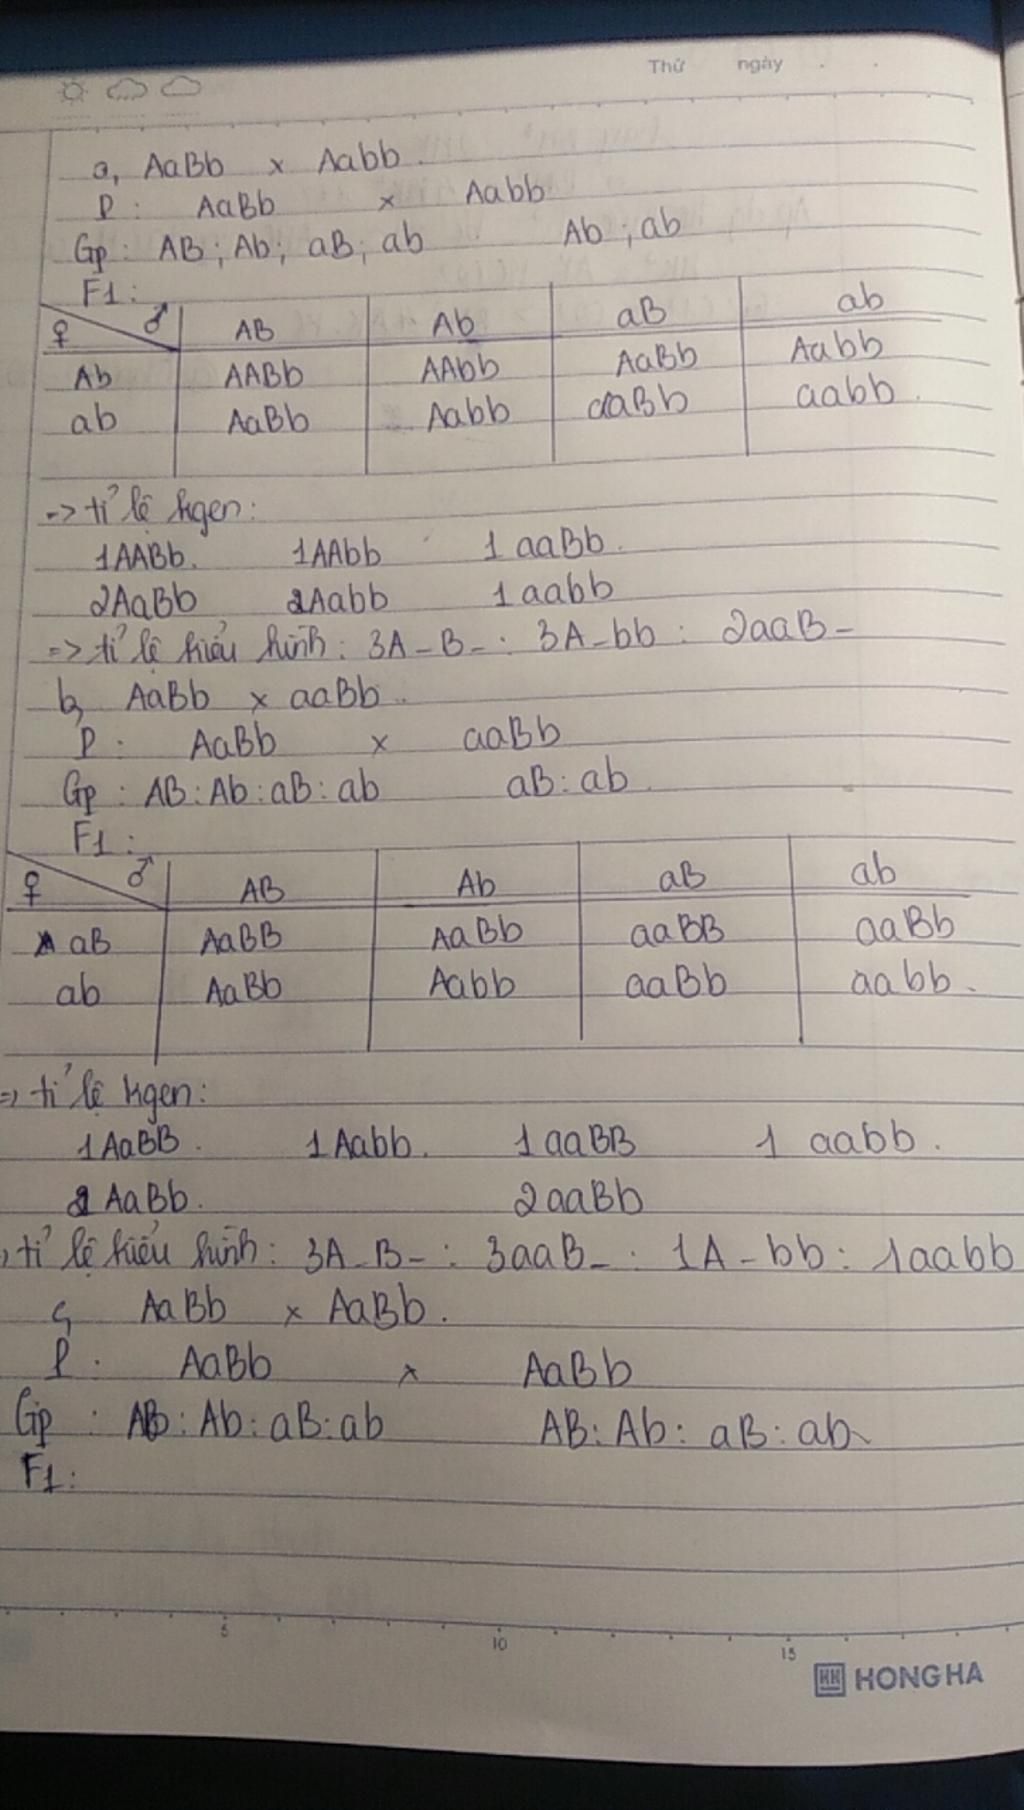 Thứ ngày
a, AaBb x Aabb.
P : AaBb x Aabb
Gp : AB ; Ab ; aB ; ab Ab ; ab
F1 :
♀ ♂ AB Ab aB ab
Ab AABb AAbb AaBb Aabb
ab AaBb Aabb aaBb aabb.
-> tỉ lệ kgen :
1AABb. 1AAbb 1 aaBb.
2AaBb 2Aabb 1 aabb
=> tỉ lệ kiểu hình : 3A-B- : 3A-bb : 2aaB-
b, AaBb x aaBb.
P : AaBb x aaBb
Gp : AB : Ab : aB : ab aB : ab.
F1 :
♀ ♂ AB Ab aB ab
aB AaBB AaBb aaBB aaBb
ab AaBb Aabb aaBb aabb.
=> tỉ lệ kgen :
1AaBB. 1Aabb. 1aaBB 1 aabb.
2 AaBb. 2aaBb
tỉ lệ kiểu hình : 3A-B- : 3aaB- : 1A-bb : 1aabb
c, AaBb x AaBb.
P : AaBb x AaBb
Gp : AB : Ab : aB : ab AB : Ab : aB : ab
F1 :
5 10 15
HH HONG HA